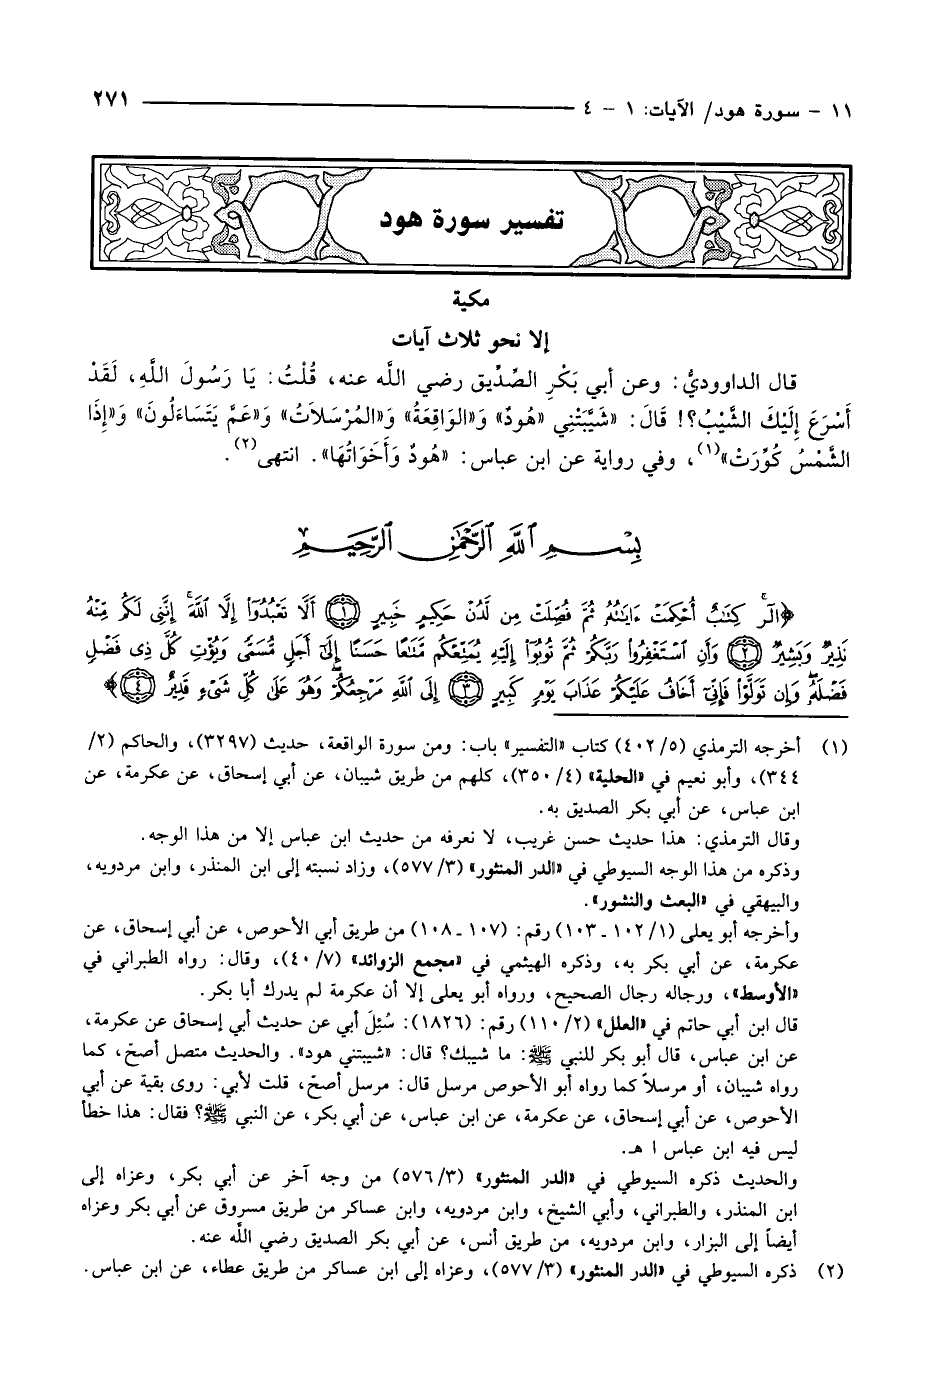 ١١ - سورة هود/ الآيات: ١ - ٤ ٢٧١
تفسير سورة هود
مكية
إلا نحو ثلاث آيات
قال الداووديُّ: وعن أبي بَكْرِ الصِّدِّيق رضي اللَّه عنه، قُلْتُ: يَا رَسُولَ اللَّهِ، لَقَدْ
أَسْرَعَ إِلَيْكَ الشَّيْبُ؟! قَالَ: «شَيَّبَتْنِي «هُودٌ» وَ«الوَاقِعَةُ» وَ«المُرْسَلاَتُ» وَ«عَمَّ يَتَسَاءَلُونَ» وَ«إِذَا
الشَّمْسُ كُوِّرَتْ»(١)، وفي رواية عن ابن عباس: «هُودٌ وَأَخَوَاتُهَا». انتهى(٢).
بِسْمِ ٱللَّهِ ٱلرَّحْمَٰنِ ٱلرَّحِيمِ
﴿الٓرۚ كِتَٰبٌ أُحْكِمَتْ ءَايَٰتُهُۥ ثُمَّ فُصِّلَتْ مِن لَّدُنْ حَكِيمٍ خَبِيرٍ ﴿١﴾ أَلَّا تَعْبُدُوٓا۟ إِلَّا ٱللَّهَۚ إِنَّنِى لَكُم مِّنْهُ
نَذِيرٌ وَبَشِيرٌ ﴿٢﴾ وَأَنِ ٱسْتَغْفِرُوا۟ رَبَّكُمْ ثُمَّ تُوبُوٓا۟ إِلَيْهِ يُمَتِّعْكُم مَّتَٰعًا حَسَنًا إِلَىٰٓ أَجَلٍ مُّسَمًّى وَيُؤْتِ كُلَّ ذِى فَضْلٍ
فَضْلَهُۥۖ وَإِن تَوَلَّوْا۟ فَإِنِّىٓ أَخَافُ عَلَيْكُمْ عَذَابَ يَوْمٍ كَبِيرٍ ﴿٣﴾ إِلَى ٱللَّهِ مَرْجِعُكُمْۖ وَهُوَ عَلَىٰ كُلِّ شَىْءٍ قَدِيرٌ ﴿٤﴾﴾
(١) أخرجه الترمذي (٤٠٢/٥) كتاب «التفسير» باب: ومن سورة الواقعة، حديث (٣٢٩٧)، والحاكم (٢/
٣٤٤)، وأبو نعيم في «الحلية» (٣٥٠/٤)، كلهم من طريق شيبان، عن أبي إسحاق، عن عكرمة، عن
ابن عباس، عن أبي بكر الصديق به.
وقال الترمذي: هذا حديث حسن غريب، لا نعرفه من حديث ابن عباس إلا من هذا الوجه.
وذكره من هذا الوجه السيوطي في «الدر المنثور» (٥٧٧/٣)، وزاد نسبته إلى ابن المنذر، وابن مردويه،
والبيهقي في «البعث والنشور».
وأخرجه أبو يعلى (١٠٢/١ ـ ١٠٣) رقم: (١٠٧ ـ ١٠٨) من طريق أبي الأحوص، عن أبي إسحاق، عن
عكرمة، عن أبي بكر به، وذكره الهيثمي في «مجمع الزوائد» (٤٠/٧)، وقال: رواه الطبراني في
«الأوسط»، ورجاله رجال الصحيح، ورواه أبو يعلى إلا أن عكرمة لم يدرك أبا بكر.
قال ابن أبي حاتم في «العلل» (١١٠/٢) رقم: (١٨٢٦): سُئِلَ أبي عن حديث أبي إسحاق عن عكرمة،
عن ابن عباس، قال أبو بكر للنبي ﷺ: ما شيبك؟ قال: «شيبتني هود». والحديث متصل أصحّ، كما
رواه شيبان، أو مرسلاً كما رواه أبو الأحوص مرسل قال: مرسل أصحّ، قلت لأبي: روى بقية عن أبي
الأحوص، عن أبي إسحاق، عن عكرمة، عن ابن عباس، عن أبي بكر، عن النبي ﷺ؟ فقال: هذا خطأ
ليس فيه ابن عباس ا هـ.
والحديث ذكره السيوطي في «الدر المنثور» (٥٧٦/٣) من وجه آخر عن أبي بكر، وعزاه إلى
ابن المنذر، والطبراني، وأبي الشيخ، وابن مردويه، وابن عساكر من طريق مسروق عن أبي بكر وعزاه
أيضاً إلى البزار، وابن مردويه، من طريق أنس، عن أبي بكر الصديق رضي اللَّه عنه.
(٢) ذكره السيوطي في «الدر المنثور» (٥٧٧/٣)، وعزاه إلى ابن عساكر من طريق عطاء، عن ابن عباس.